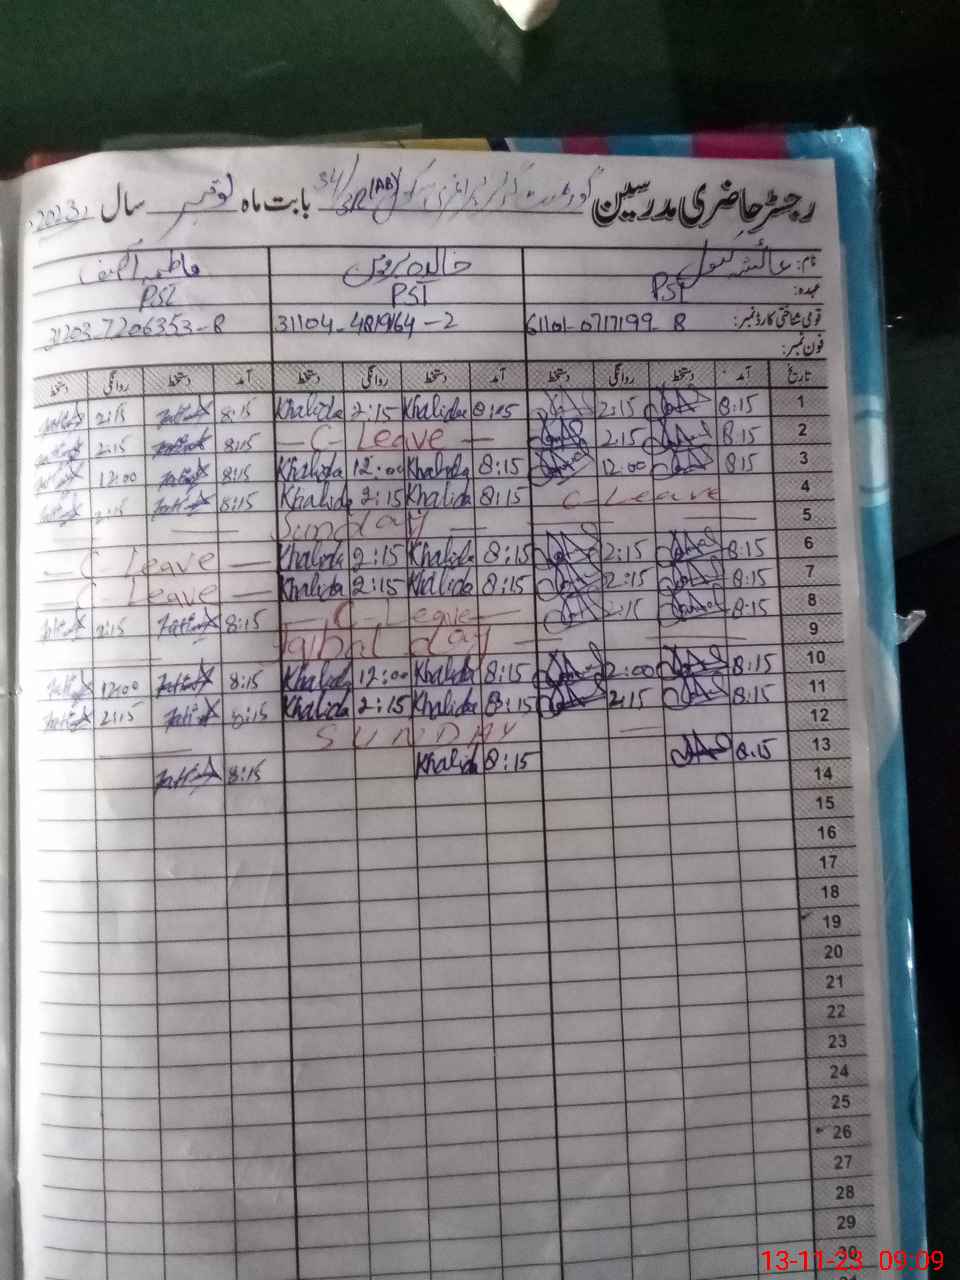 رجسٹر حاضری مدرسین گورنمنٹ گرلز پرائمری سکول 34/3R(AB) بابت ماہ نومبر سال 2023ء
نام: عائشہ کنول خالدہ پروین فاطمہ
عہدہ: PST PST PST
قومی شناختی کارڈ نمبر: 61101-0717199-8 31104-4819164-2 31203-7206353-8
فون نمبر:
تاریخ آمد دستخط روانگی دستخط آمد دستخط روانگی دستخط آمد دستخط روانگی دستخط
1 8:15 2:15 8:15 Khalida 2:15 Khalida 8:15 2:15
2 8:15 2:15 — C- Leave — 8:15 2:15
3 8:15 12:00 8:15 Khalida 12:00 Khalida 8:15 12:00
4 C-Leave 8:15 Khalida 2:15 Khalida 8:15 2:15
5 — Sunday —
6 8:15 2:15 8:15 Khalida 2:15 Khalida — C-Leave —
7 8:15 2:15 8:15 Khalida 2:15 Khalida — C-Leave —
8 8:15 2:15 — C-Leave — 8:15 2:15
9 Iqbal day
10 8:15 12:00 8:15 Khalida 12:00 Khalida 8:15 12:00
11 8:15 2:15 8:15 Khalida 2:15 Khalida 8:15 2:15
12 — SUNDAY —
13 8:15 8:15 Khalida 8:15
14
15
16
17
18
19
20
21
22
23
24
25
26
27
28
29
30
13-11-23 09:09